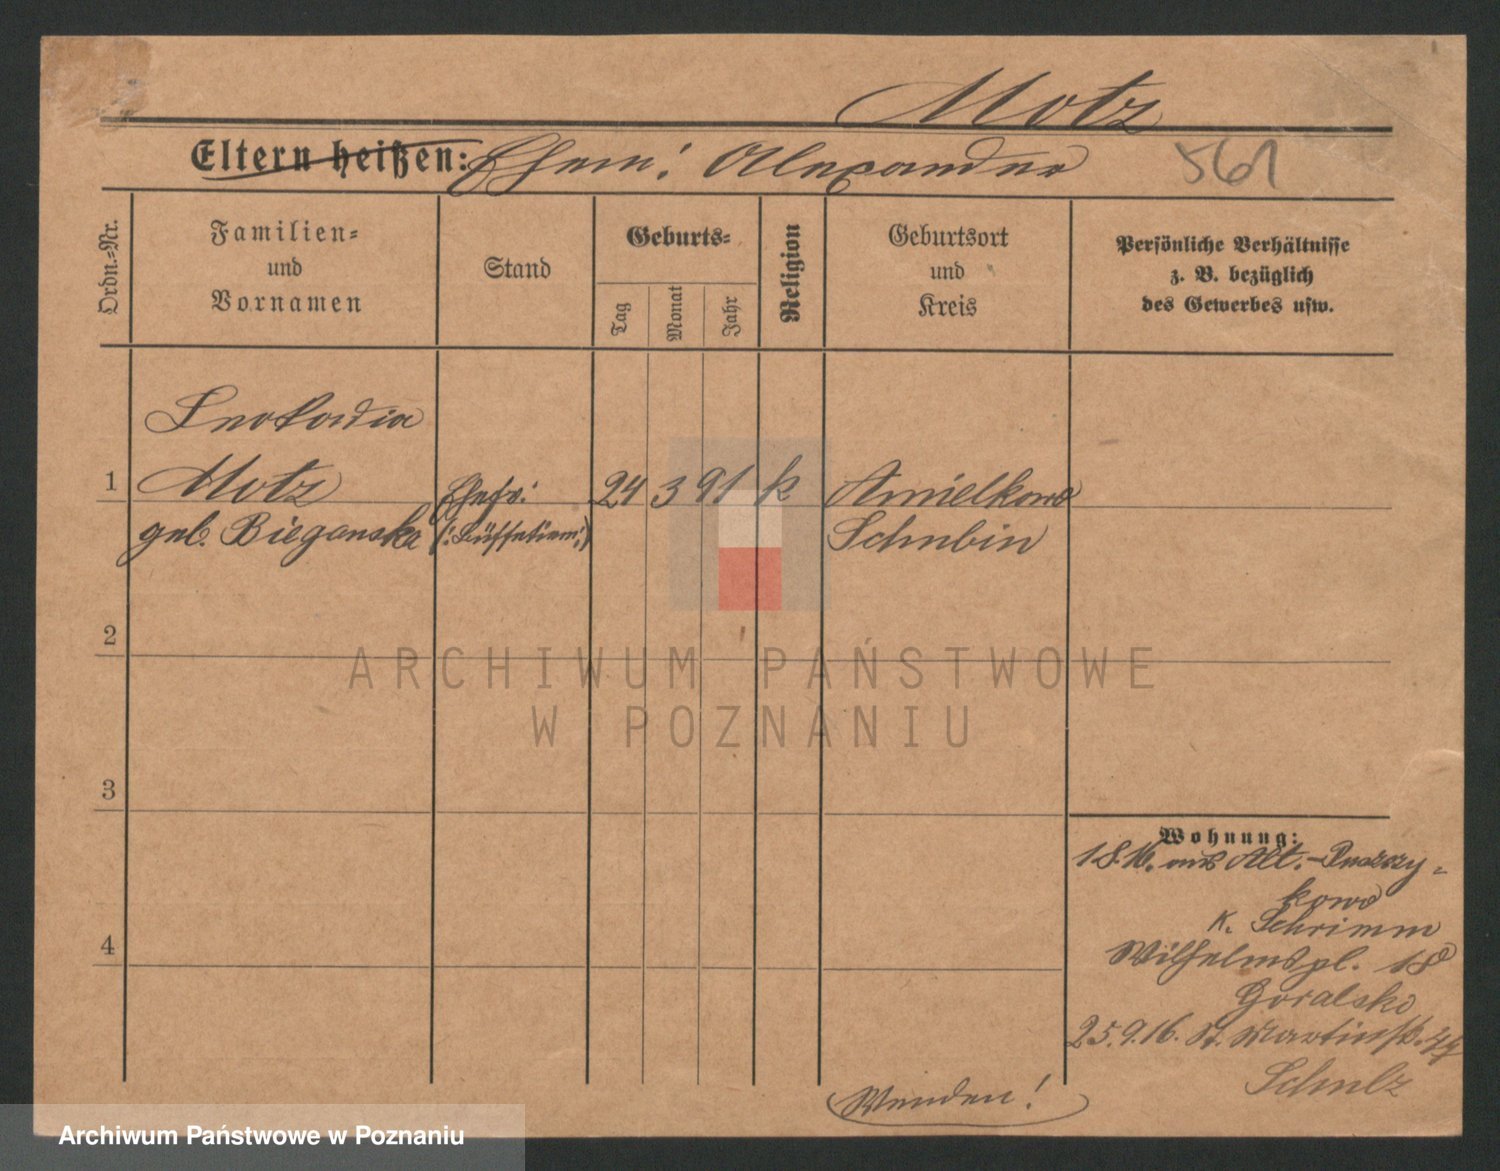 Motz
Eltern heißen: Ehem: Alexander
561
Ordn.-Nr.
Familien-
und
Vornamen
Stand
Geburts-
Tag
Monat
Jahr
Religion
Geburtsort
und
Kreis
Persönliche Verhältnisse
z. B. bezüglich
des Gewerbes usw.
Leokadia
1 Motz Ehefr: 24 3 91 k Amielkowo
geb. Bieganska Schubin
2
3
4
Wohnung:
aus Alt.-Puszczy-
kowo
K. Schrimm
Wilhelmspl. 18
Goralski
25.9.16. St. Martinstr.
Schulz
Wenden!
ARCHIWUM PAŃSTWOWE
W POZNANIU
Archiwum Państwowe w Poznaniu